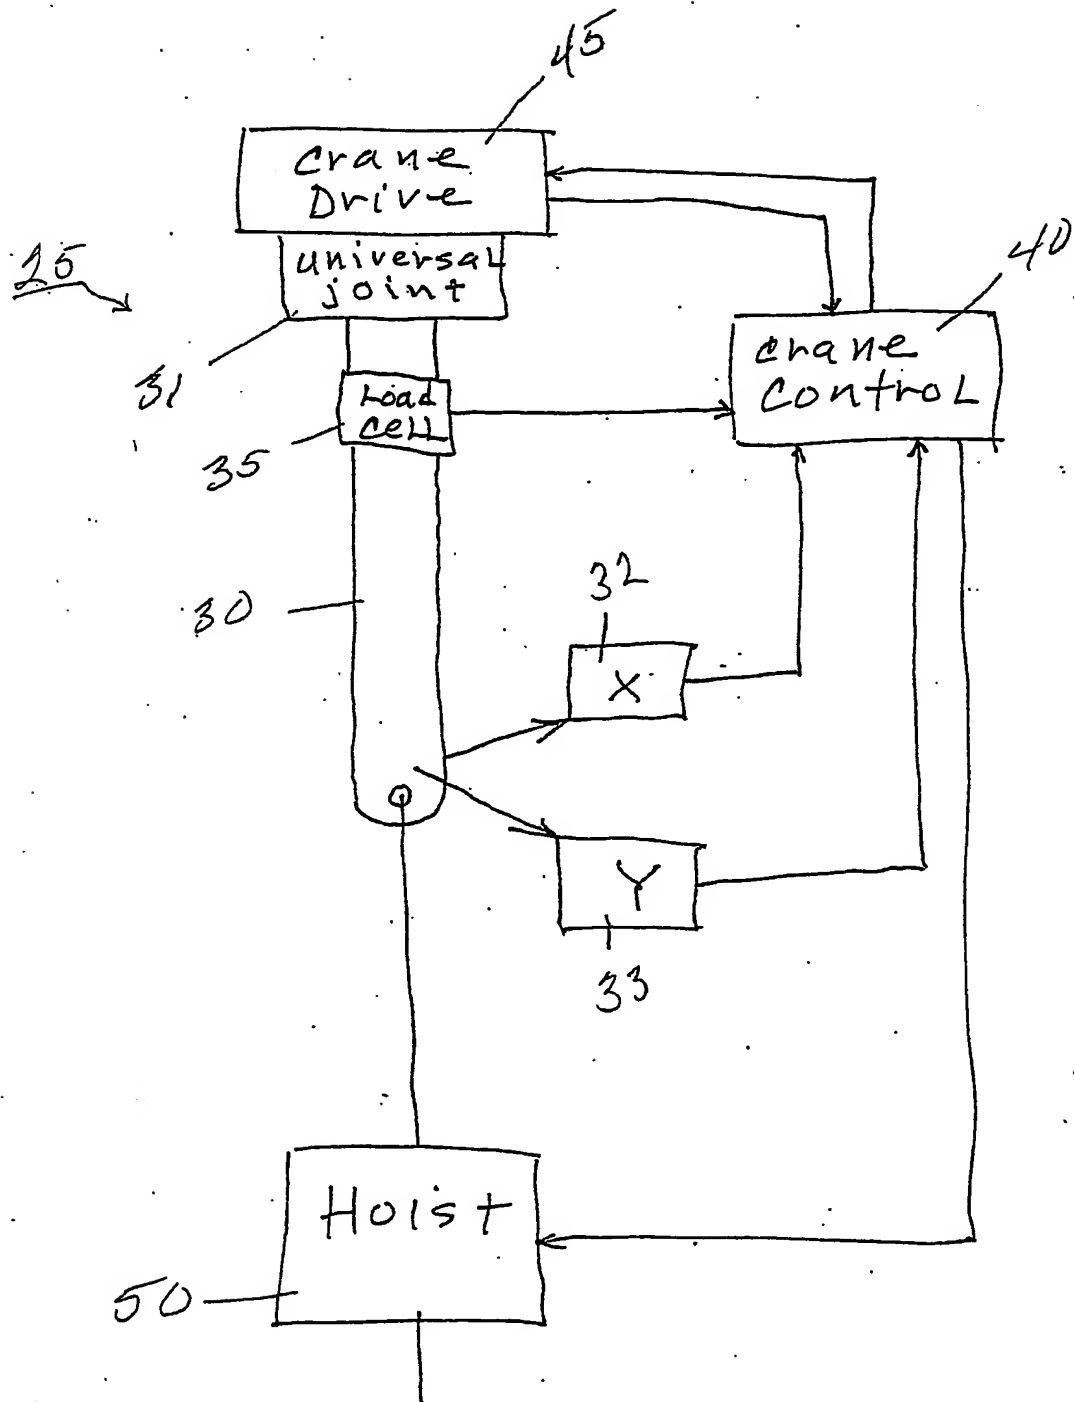 45
Crane
Drive
universal
joint
25
40
Crane
Control
31
Load
Cell
35
32
X
30
Y
33
Hoist
50